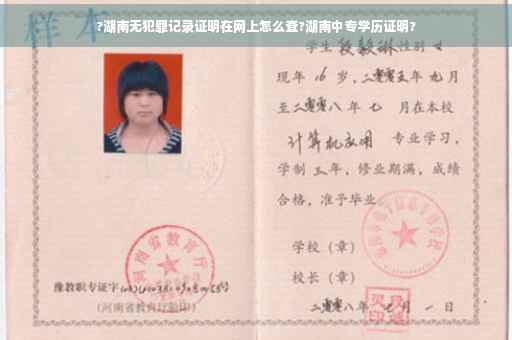 ?湖南无犯罪记录证明在网上怎么查?湖南中专学历证明?
样本
学生 段毅琳 性别 女
现年 16 岁，二零零五年 九月
至二零零八年 七 月在本校
计算机应用 专业学习，
学制 三年，修业期满，成绩
合格，准予毕业。
学校（章）
校长（章）
二零零八年 月 一 日
河南省教育厅
豫教职专证字
（河南省教育厅验印）